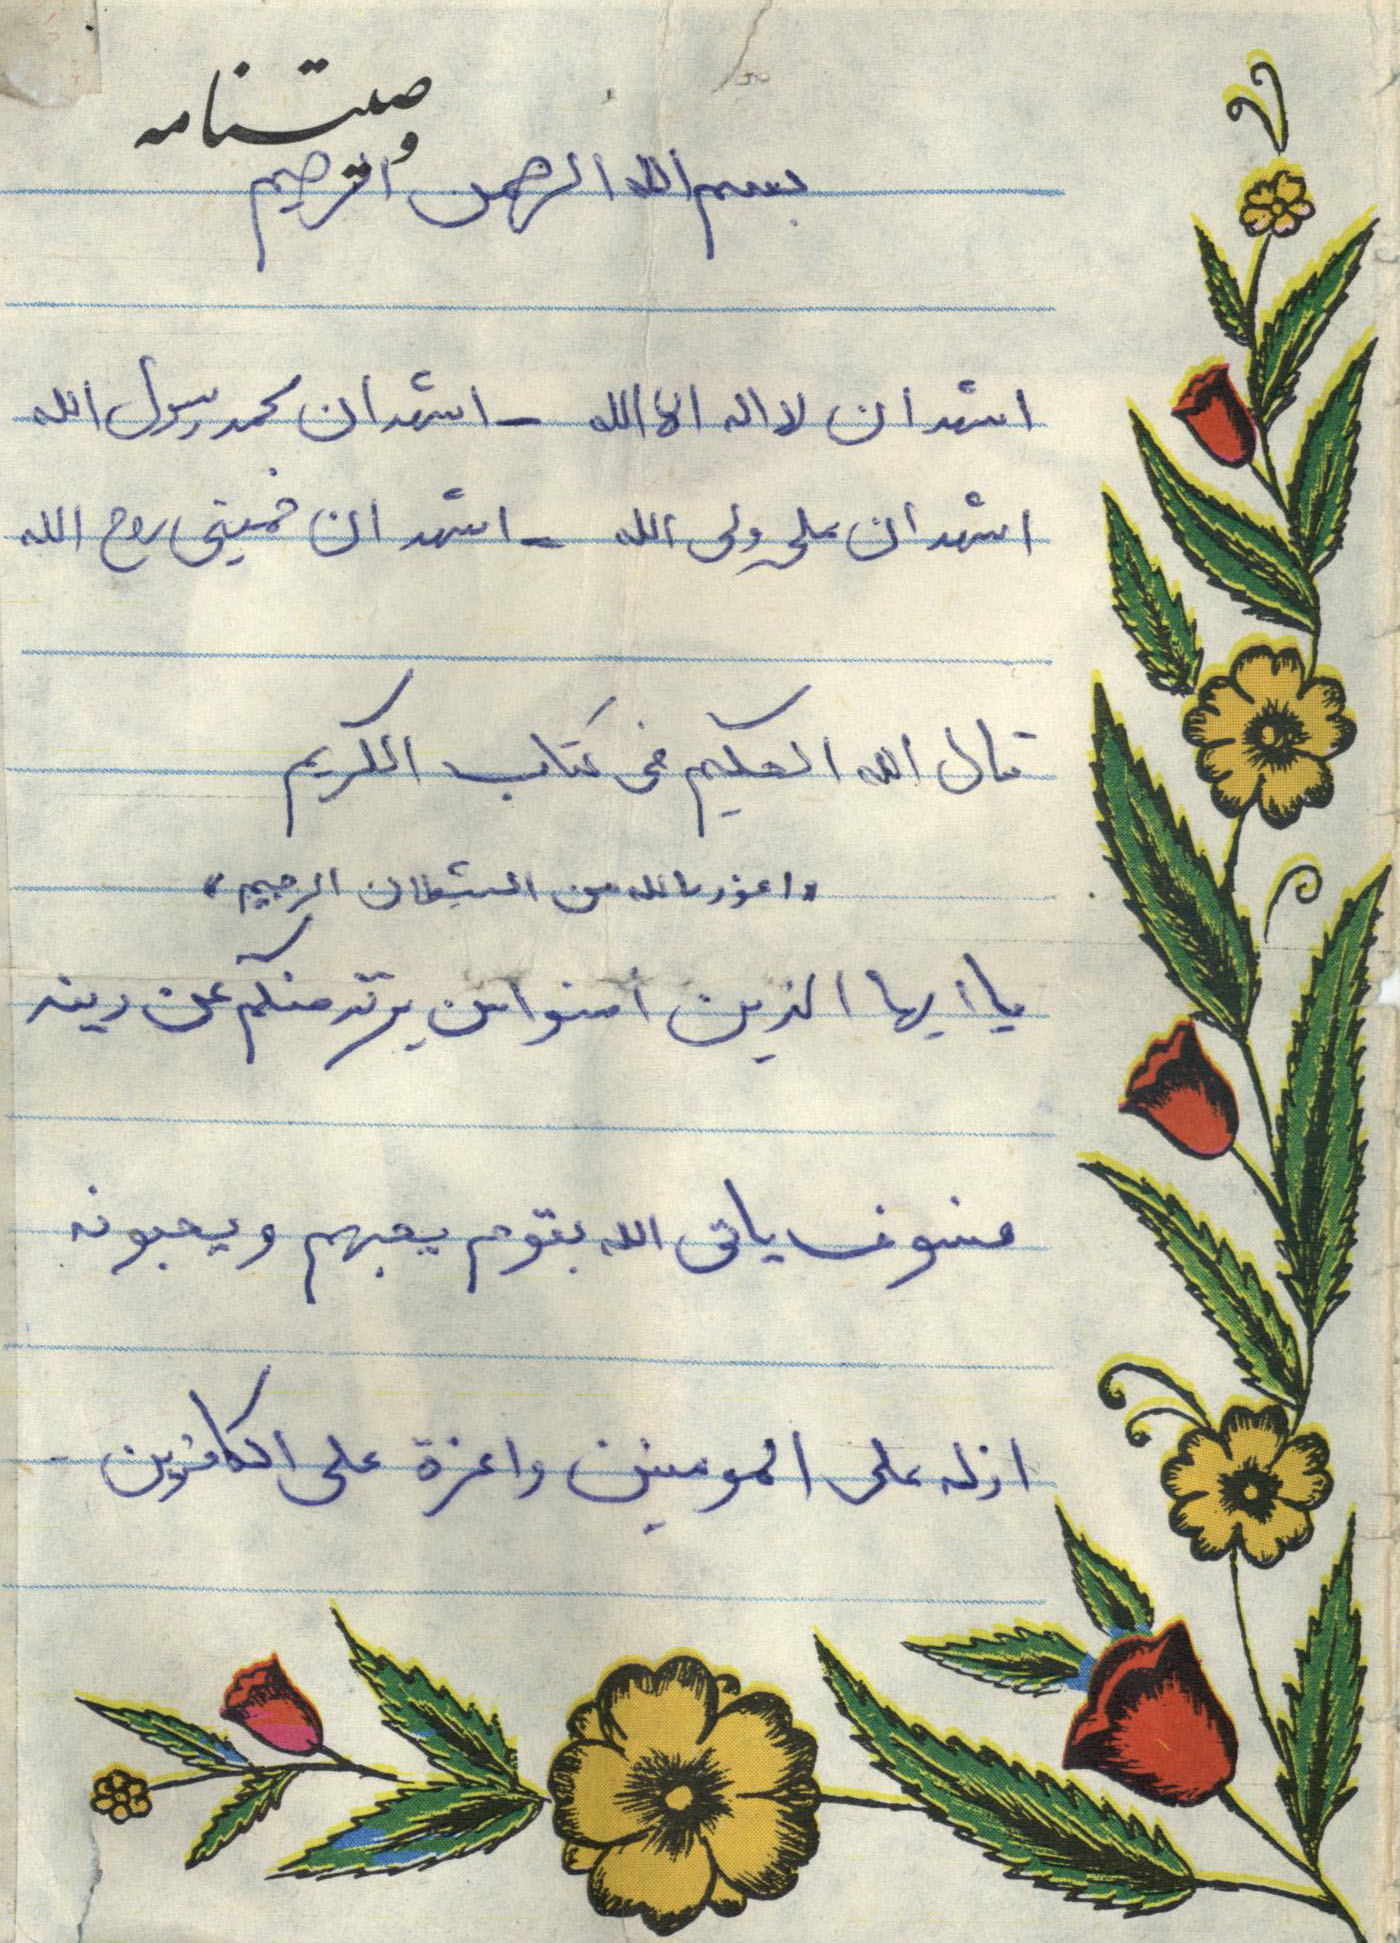 وصیتنامه
بسم الله الرحمن الرحیم
اشهد ان لا اله الا الله – اشهد ان محمد رسول الله
اشهد ان علی ولی الله – اشهد ان خمینی روح الله
قال الله الحکیم فی کتاب الکریم
«اعوذ بالله من الشیطان الرجیم»
یا ایها الذین امنوا من یرتد منکم عن دینه
فسوف یاتی الله بقوم یحبهم و یحبونه
اذله علی المومنین و اعزة علی الکافرین -